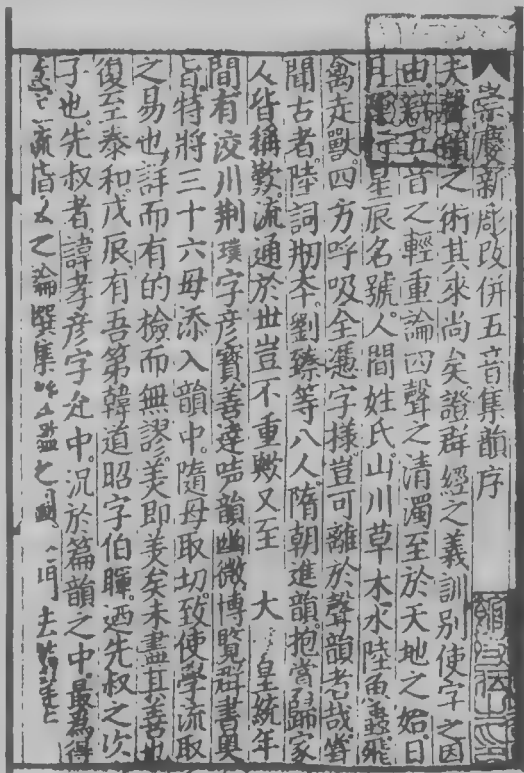 崇慶新彫改併五音集韻序
夫聲韻之術其來尚矣證群經之義訓別使字之因
由辯五音之輕重論四聲之清濁至於天地之始日
月星辰名號人間姓氏山川草木水陸魚虫飛
禽走獸四方呼吸全憑字樣豈可離於聲韻者哉嘗
聞古者陸詞刱本劉臻等八人隋朝進韻抱賞歸家
人皆稱歎流通於世豈不重歟又至 大 皇統年
間有洨川荆璞字彦寶善達聲韻幽微博覽群書奥
旨特將三十六母添入韻中隨母取切致使學流取
之易也詳而有的檢而無謬美即美矣未盡其善也
復至泰和戊辰有吾弟韓道昭字伯暉迺先叔之次
子也先叔者諱孝彦字允中況於篇韻之中最為得
流皆之論撰集